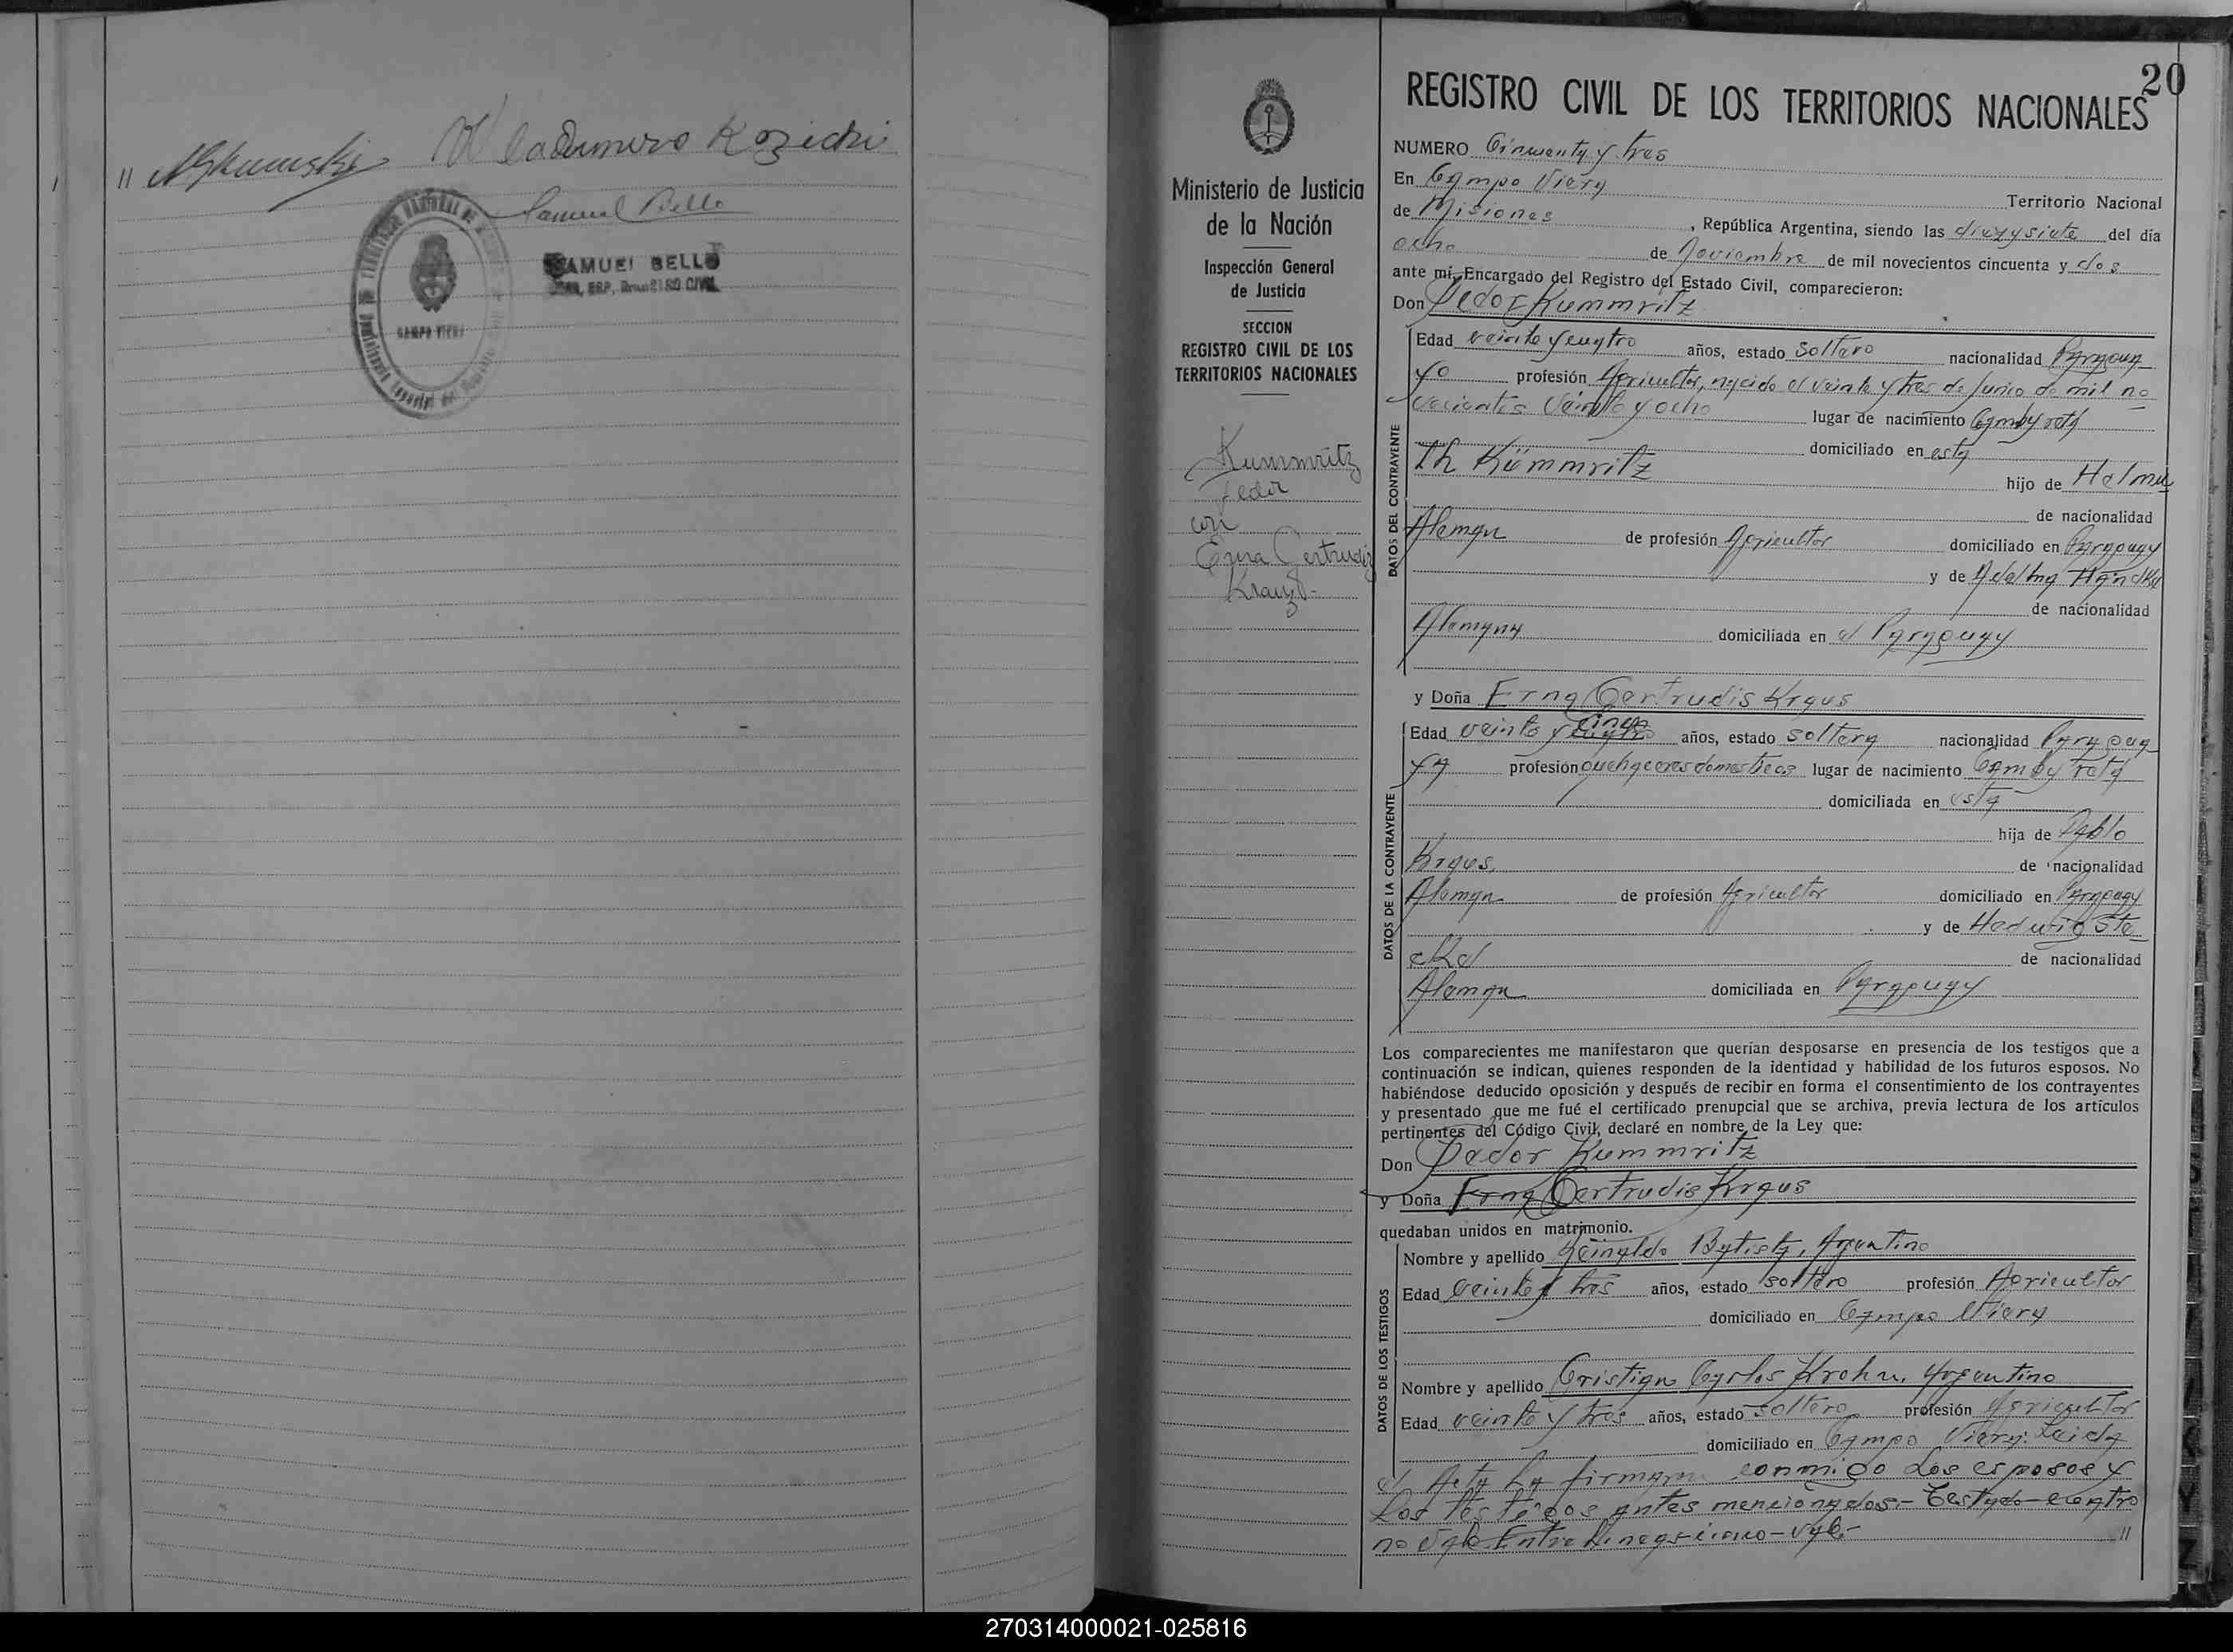 Wladimiro Kozicki
Samuel Bello
SAMUEL BELLO
CAMPO VIERA
20
Ministerio de Justicia
de la Nación
Inspección General
de Justicia
SECCION
REGISTRO CIVIL DE LOS
TERRITORIOS NACIONALES
Kummritz
Fedor
con
Erna Gertrudis
Kraus.-
REGISTRO CIVIL DE LOS TERRITORIOS NACIONALES
NUMERO Cincuenta y tres
En Campo Viera
Territorio Nacional
de Misiones, República Argentina, siendo las diez y siete del día
ocho de Noviembre de mil novecientos cincuenta y dos
ante mí, Encargado del Registro del Estado Civil, comparecieron:
Don Fedor Kummritz
DATOS DEL CONTRAYENTE
Edad veinte y cuatro años, estado Soltero nacionalidad Paragua
yo profesión Agricultor, nacido el veinte y tres de Junio de mil no
vecientos veinte y ocho lugar de nacimiento Cambyretá
domiciliado en esta
hijo de Helmu
th Kümmritz
de nacionalidad
Aleman de profesión Agricultor domiciliado en Paraguay
y de Adelina Handke
de nacionalidad
Alemana domiciliada en el Paraguay
y Doña Erna Gertrudis Kraus
DATOS DE LA CONTRAYENTE
cinco
Edad veinte y cuatro años, estado soltera nacionalidad Paragua
ya profesión quehaceres domesticos lugar de nacimiento Cambyretá
domiciliada en esta
hija de Pablo
Kraus, de nacionalidad
Aleman de profesión Agricultor domiciliado en Paraguay
y de Hedwig Ste
ckel de nacionalidad
Alemana domiciliada en Paraguay
Los comparecientes me manifestaron que querían desposarse en presencia de los testigos que a
continuación se indican, quienes responden de la identidad y habilidad de los futuros esposos. No
habiéndose deducido oposición y después de recibir en forma el consentimiento de los contrayentes
y presentado que me fué el certificado prenupcial que se archiva, previa lectura de los artículos
pertinentes del Código Civil, declaré en nombre de la Ley que:
Don Fedor Kummritz
y Doña Erna Gertrudis Kraus
quedaban unidos en matrimonio.
DATOS DE LOS TESTIGOS
Nombre y apellido Reinaldo Batista, Argentino
Edad veinte y tres años, estado soltero profesión Agricultor
domiciliado en Campo Viera
Nombre y apellido Cristian Carlos Krohn, Argentino
Edad veinte y tres años, estado Soltero profesión Agricultor
domiciliado en Campo Viera: Leida
el Acta La firmaron conmigo Los esposos y
Los testigos antes mencionados.- Testado-cuatro
no vale Entre Lineas-cinco-vale- //
270314000021-025816